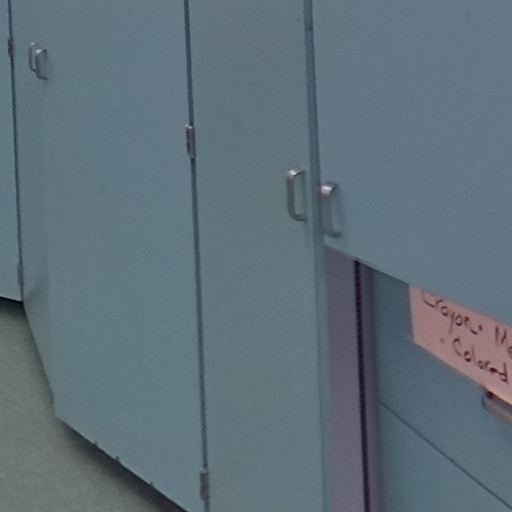 Crayon·
· Colored